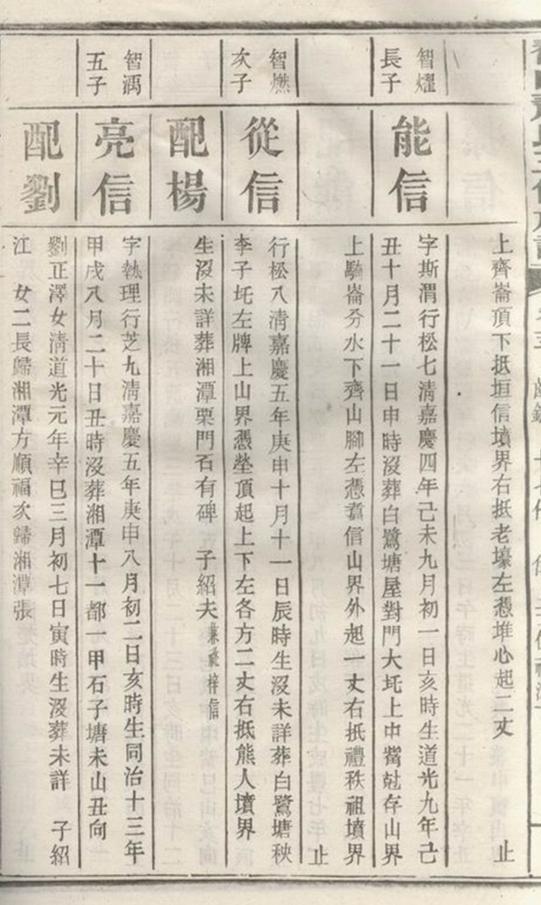 上齊崙頂下抵垣信墳界右抵老壕左憑堆心起二丈 止
智燿長子
能信
字斯渭行松七清嘉慶四年己未九月初一日亥時生道光九年己
丑十月二十一日申時沒葬白鷺塘屋對門大圫上中嘴
上騎崙分水下齊山腳左憑 信山界外起一丈右抵禮秩祖墳界
止
智燃次子
從信
行松八清嘉慶五年庚申十月十一日辰時生沒未詳葬白鷺塘秧
李子圫左牌上山界憑塋頂起上下左各方二丈右抵熊人墳界
配楊
生沒未詳葬湘潭栗門石有碑 子紹夫兼祧梓信
智滴五子
亮信
字執理行芝九清嘉慶五年庚申八月初二日亥時生同治十三年
甲戌八月二十日丑時沒葬湘潭十一都一甲石子塘未山丑向
配劉
劉正澤女清道光元年辛巳三月初七日寅時生沒葬未詳 子紹
江 女二長歸湘潭方順福次歸湘潭張